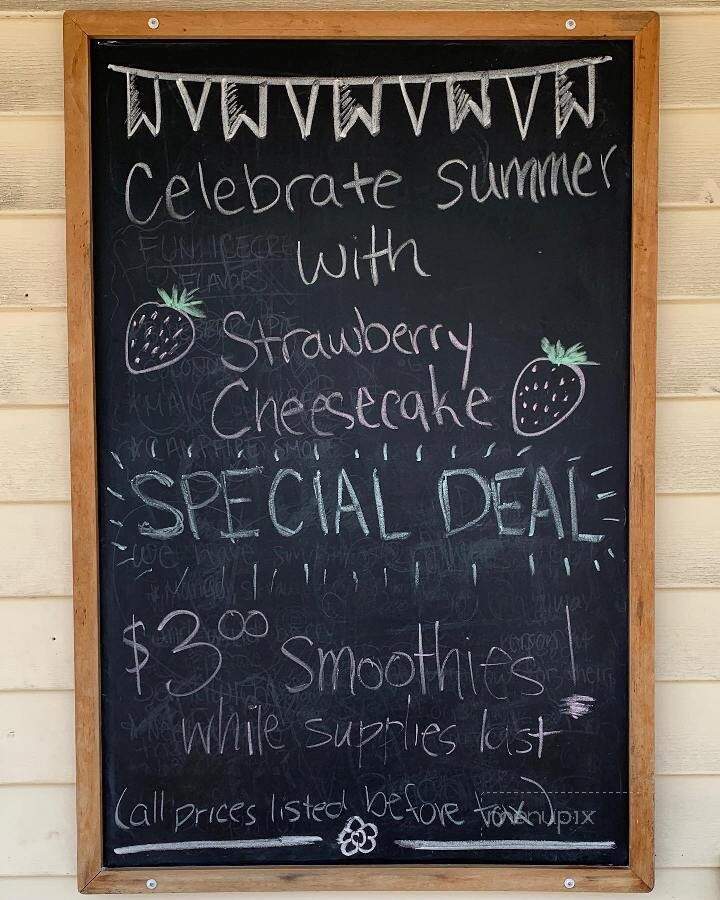 Celebrate summer
with
Strawberry
Cheesecake
SPECIAL DEAL
$3.00 Smoothies!
while supplies last
(all prices listed before tax)
menupix